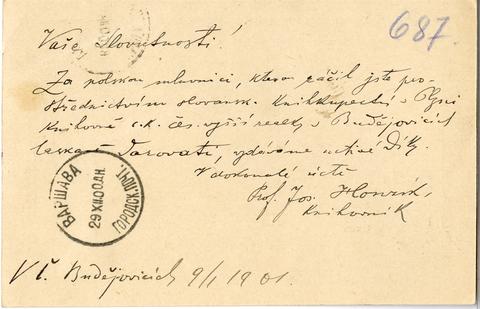 687.
Vaše Slovutnosti!
Za polskou mluvnici, kterou ráčil jste pro-
střednictvím slovansk. knihkupectví v
knihovně c.k. čes. vyšší realky v Budějovicích
laskavě darovati, vzdáváme uctivé díky.
V dokonalé úctě
Prof. Jos.
knihovník
ВАРШАВА
29 XII.00 Д.Н.
ГОРОДСК. ПОЧТ.
V Č. Budějovicích 9/I 1901.